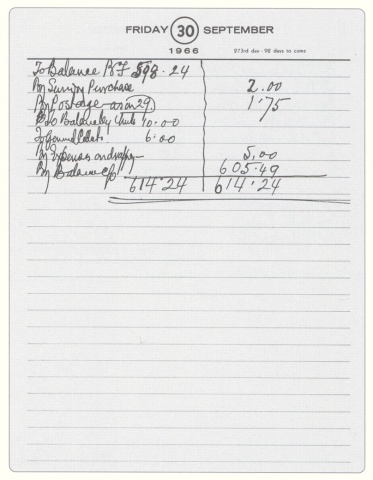 FRIDAY 30 SEPTEMBER
1966
273rd day - 92 days to come
To Balance B/F 598.24
By Sundry Purchase 2.00
By Postage as on 29. 1.75
To Balance by 10.00
To 6.00
By Expenses 5.00
By Balance c/f 605.49
614.24 614.24